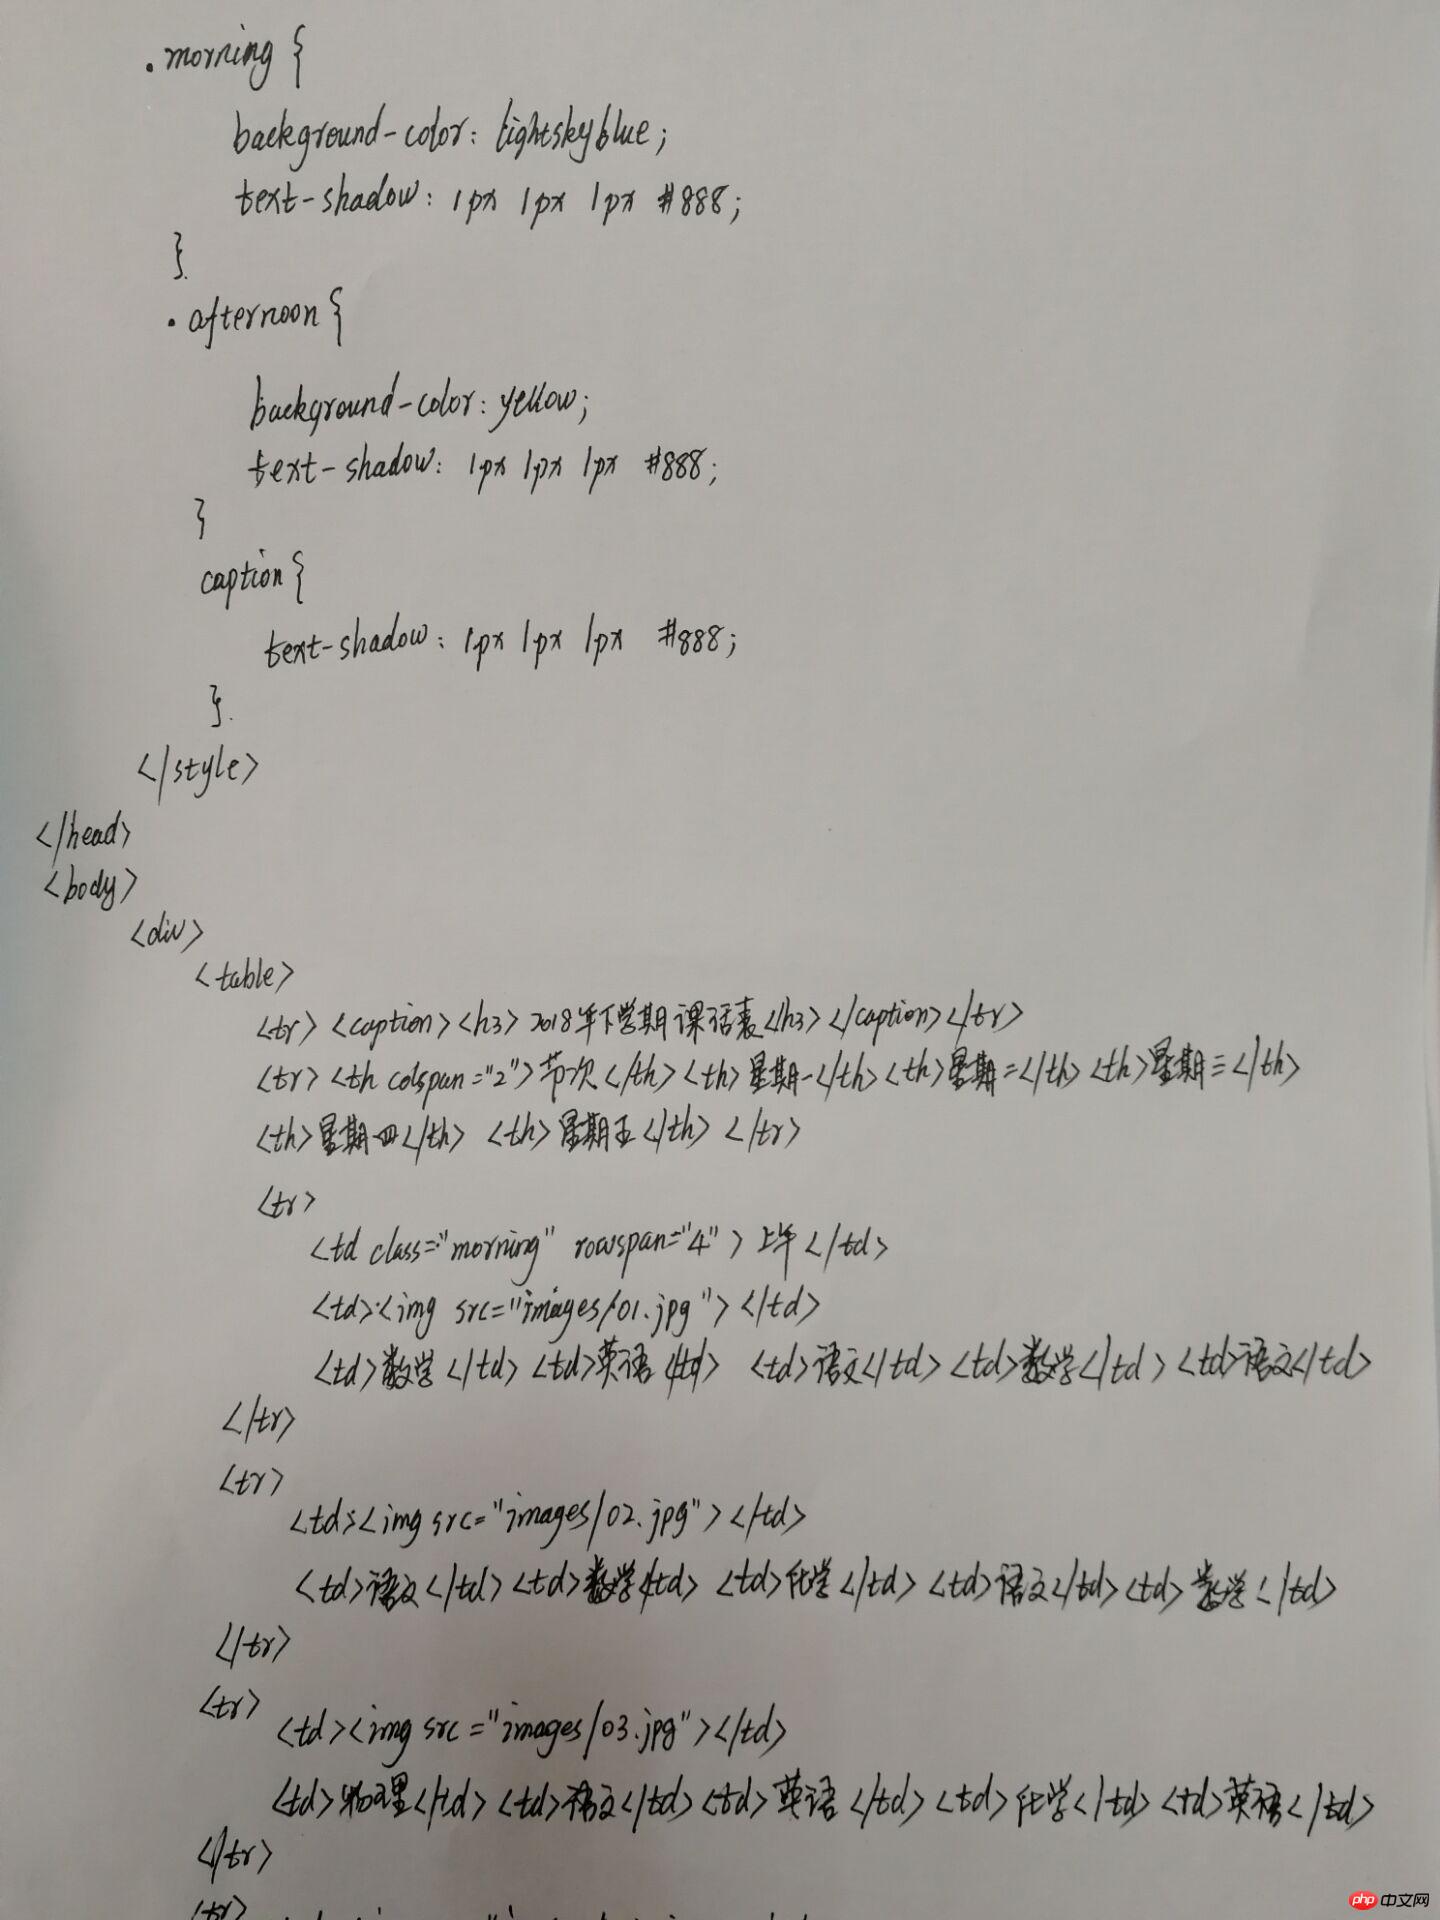 .morning {
background-color: lightskyblue;
text-shadow: 1px 1px 1px #888;
}
.afternoon{
background-color: yellow;
text-shadow: 1px 1px 1px #888;
}
caption{
text-shadow: 1px 1px 1px #888;
}
</style>
</head>
<body>
<div>
<table>
<tr> <caption><h3>2018年下学期课话表</h3></caption></tr>
<tr> <th colspan="2">节次</th> <th>星期一</th> <th>星期二</th> <th>星期三</th>
<th>星期四</th> <th>星期五</th> </tr>
<tr>
<td class="morning" rowspan="4">上午</td>
<td><img src="images/01.jpg"></td>
<td>数学</td> <td>英语</td> <td>语文</td> <td>数学</td> <td>语文</td>
</tr>
<tr>
<td><img src="images/02.jpg"></td>
<td>语文</td> <td>数学</td> <td>化学</td> <td>语文</td> <td>数学</td>
</tr>
<tr>
<td><img src="images/03.jpg"></td>
<td>物理</td> <td>语文</td> <td>英语</td> <td>化学</td> <td>英语</td>
</tr>
<tr>
php 中文网